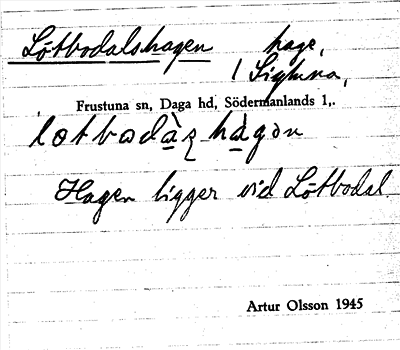 Lötbodalshagen hage,
1 Sigtuna,
Frustuna sn, Daga hd, Södermanlands l,.
lotbodàʒ hàgɔn
Hagen ligger vid Lötbodal
Artur Olsson 1945